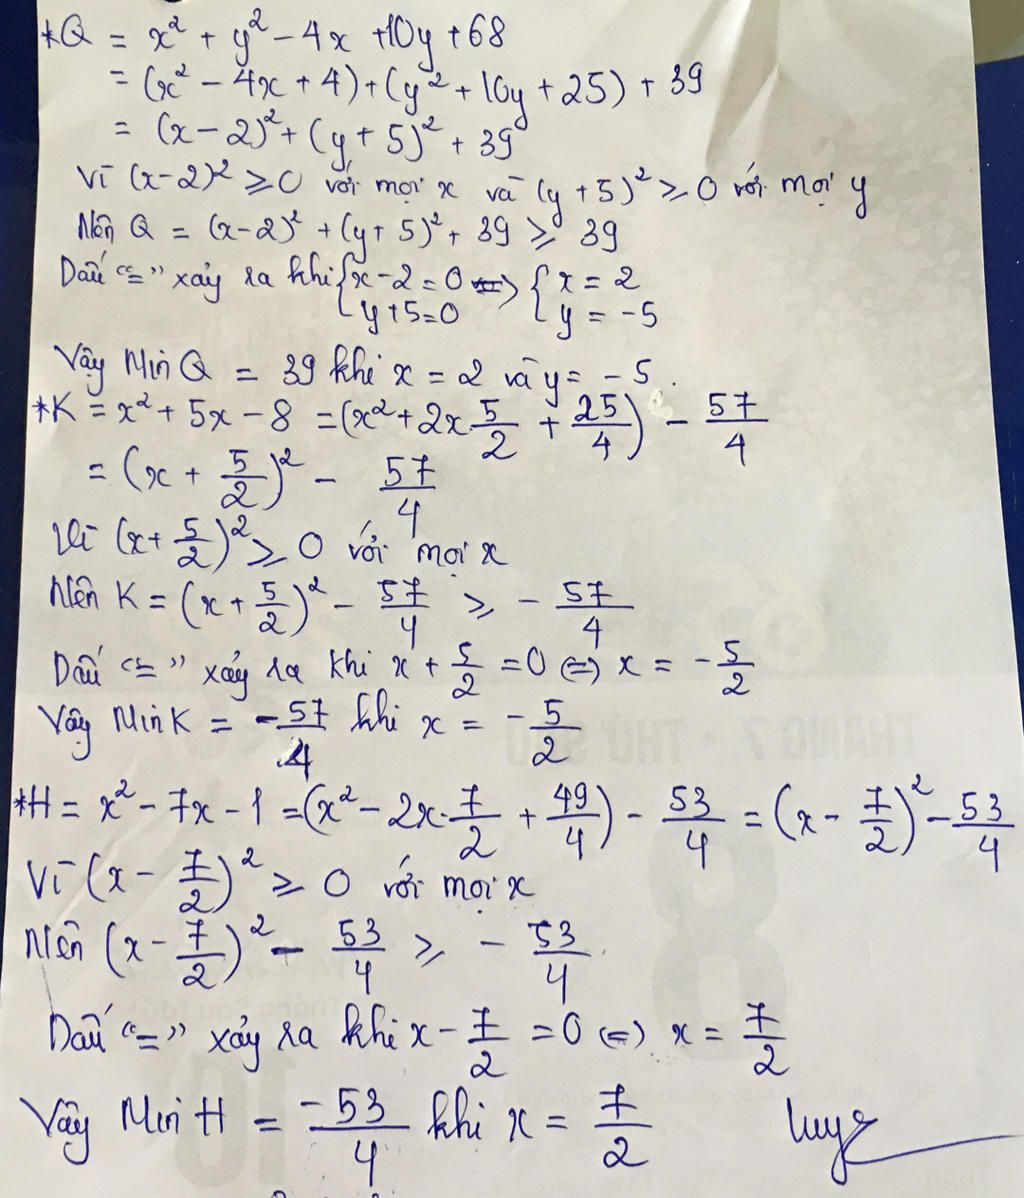 *Q = x² + y² - 4x + 10y + 68
= (x² - 4x + 4) + (y² + 10y + 25) + 39
= (x - 2)² + (y + 5)² + 39
Vì (x-2)² ≥ 0 với mọi x và (y + 5)² ≥ 0 với mọi y
Nên Q = (x-2)² + (y+ 5)² + 39 ≥ 39
Dấu "=" xảy ra khi { x - 2 = 0 ; y + 5 = 0 <=> { x = 2 ; y = -5
Vậy Min Q = 39 khi x = 2 và y = -5.
*K = x² + 5x - 8 = (x² + 2x 5/2 + 25/4) - 57/4
= (x + 5/2)² - 57/4
Vì (x + 5/2)² ≥ 0 với mọi x
Nên K = (x + 5/2)² - 57/4 ≥ - 57/4
Dấu "=" xảy ra khi x + 5/2 = 0 <=> x = -5/2
Vậy Min K = -57/4 khi x = -5/2
*H = x² - 7x - 1 = (x² - 2x.7/2 + 49/4) - 53/4 = (x - 7/2)² - 53/4
Vì (x - 7/2)² ≥ 0 với mọi x
Nên (x - 7/2)² - 53/4 ≥ - 53/4
Dấu "=" xảy ra khi x - 7/2 = 0 <=> x = 7/2
Vậy Min H = -53/4 khi x = 7/2